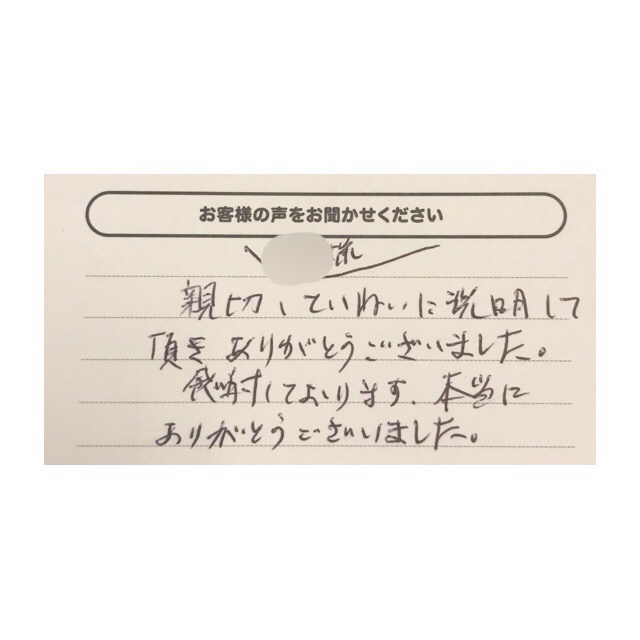 お客様の声をお聞かせください
様
親切、ていねいに説明して
頂き ありがとうございました。
感謝しております。本当に
ありがとうございました。